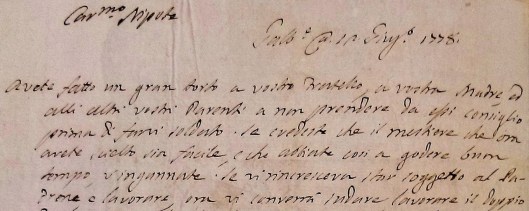 Car.mo Nipote
Giug.o 1778.
Avete fatto un gran torto a vostro Fratello, a vostra Madre, ed
alli altri vostri Parenti a non prendere da essi consiglio
prima di farvi soldato. Se credeste che il mestiere che ora
avete scelto sia facile, e che abiate cosi a godere buon
tempo v'ingannate. Se vi rincresceva star soggetto al Pa-
drone e lavorare, ora vi converrà sudare lavorare il doppio